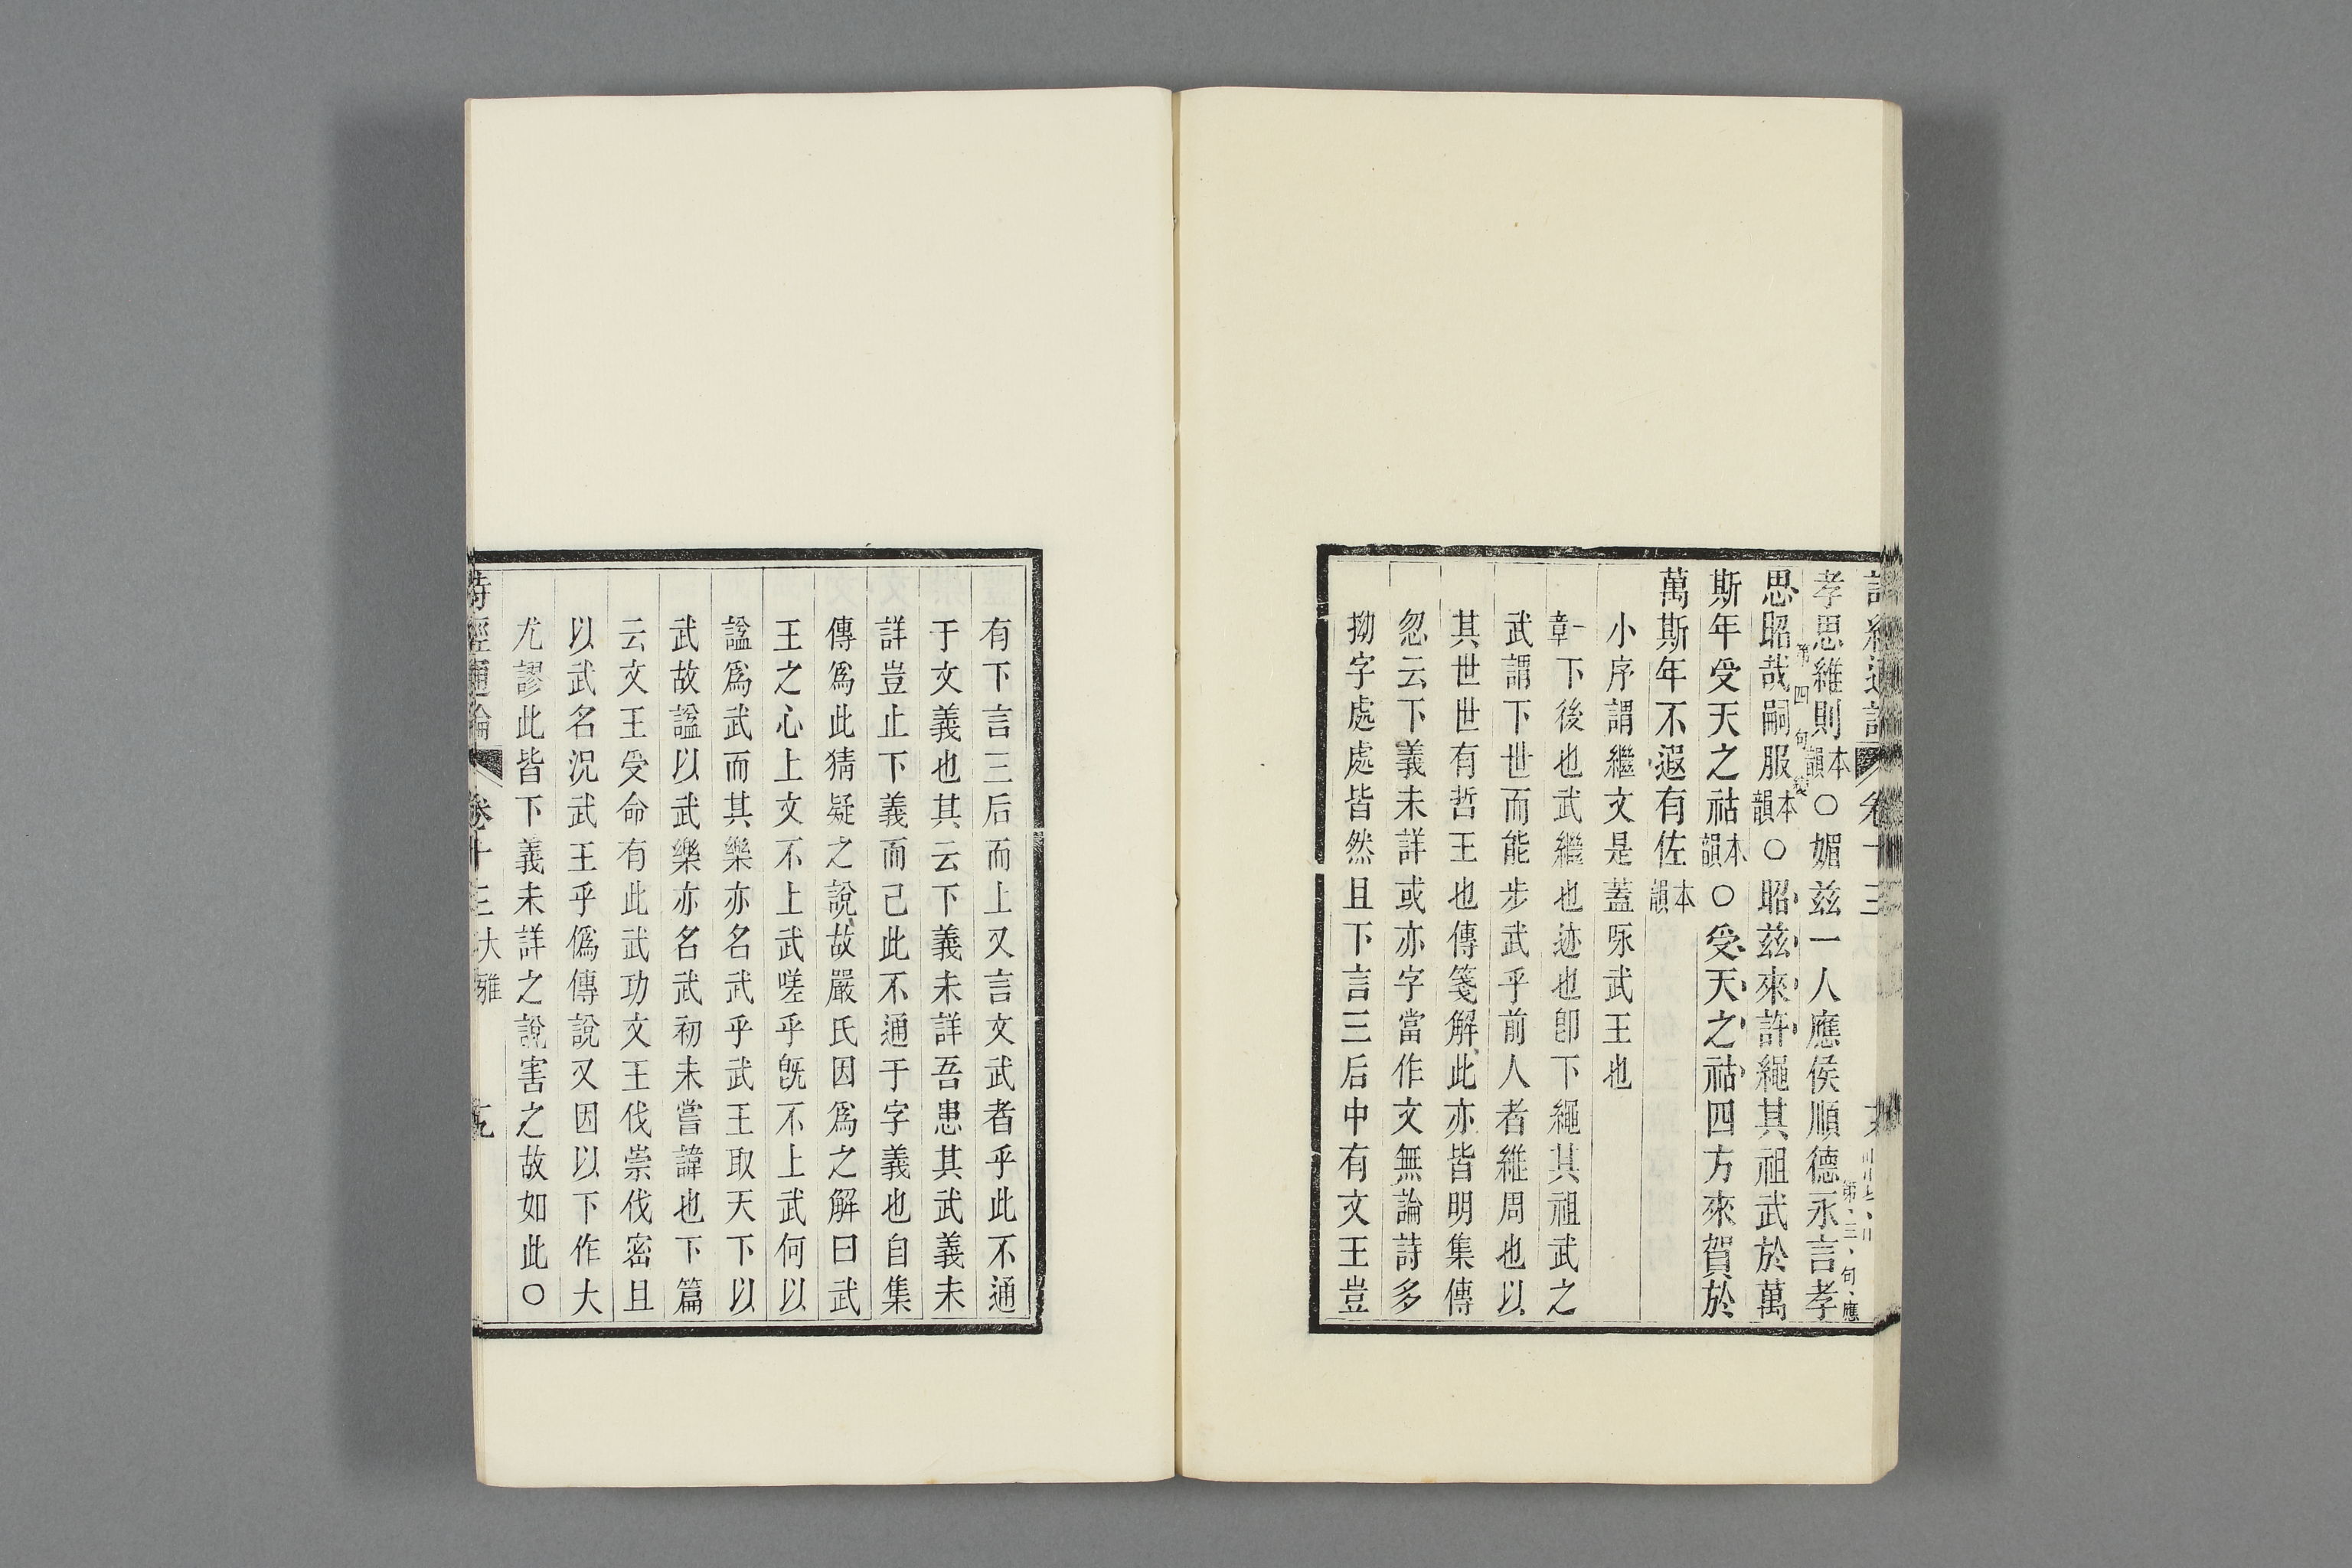 孝思維則本韻○媚茲一人應侯順德永言孝
第三句應
思昭哉嗣服本韻○昭茲來許繩其祖武於萬
第四句
斯年受天之祜本韻○受天之祜四方來賀於
萬斯年不遐有佐本韻
小序謂繼文是蓋咏武王也
一章下後也武繼也迹也卽下繩其祖武之
武謂下世而能步武乎前人者維周也以
其世世有哲王也傳箋解此亦皆明集傳
忽云下義未詳或亦字當作文無論詩多
拗字處處皆然且下言三后中有文王豈
有下言三后而上又言文武者乎此不通
于文義也其云下義未詳吾患其武義未
詳豈止下義而已此不通于字義也自集
傳爲此猜疑之說故嚴氏因爲之解曰武
王之心上文不上武嗟乎旣不上武何以
諡爲武而其樂亦名武乎武王取天下以
武故諡以武樂亦名武初未嘗諱也下篇
云文王受命有此武功文王伐崇伐密且
以武名況武王乎僞傳說又因以下作大
尤謬此皆下義未詳之說害之故如此○
詩經通論 卷十三大雅